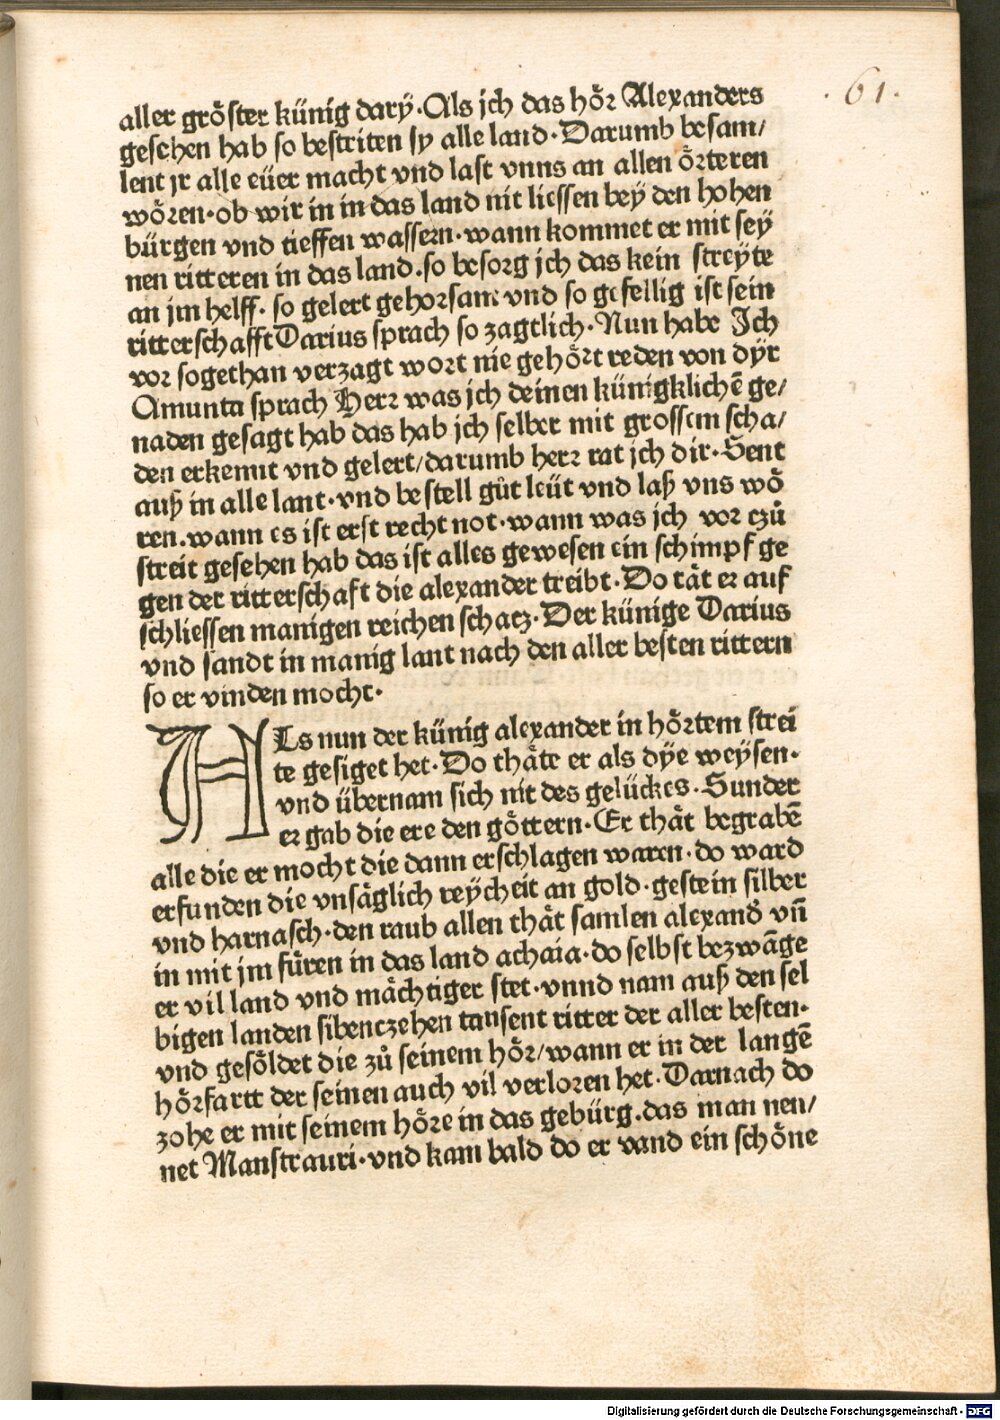 61.
aller gröster künig dary·Als jch das hör Alexanders
gesehen hab so bestriten sy alle land·Darumb besam/
lent jr alle eüer macht vnd last vnns an allen örteren
wören·ob wir in in das land nit liessen bey den hohen
bürgen vnd tieffen wassern·wann kommet er mit sey
nen ritteren in das land.so besorg jch das kein streyte
an jm helff· so gelert gehorsam vnd so gefellig ist sein
ritterschafft Darius sprach so zagtlich·Nun habe Ich
vor sogethan verzagt wort nie gehört reden von dyr
Amunta sprach Herr was jch deinen künigklichē ge/
naden gesagt hab das hab jch selber mit grossem scha/
den erkennt vnd gelert/darumb herr rat jch dir·Sent
auß in alle lant·vnd bestell gůt leüt vnd laß vns wö
ren.wann es ist erst recht not·wann was jch vor czů
streit gesehen hab das ist alles gewesen ein schimpf ge
gen der ritterschaft die alexander treibt·Do tät er auf
schliessen manigen reichen schatz·Der künige Darius
vnd sandt in manig lant nach den aller besten rittern
so er vinden mocht·
ALs nun der künig alexander in hörtem strei
te gesiget het·Do thäte er als dye weysen·
vnd übernam sich nit des gelückes·Sunder
er gab die ere den göttern·Er thät begrabē
alle die er mocht die dann erschlagen waren·do ward
erfunden die vnsäglich reycheit an gold·gestein silber
vnd harnasch·den raub allen thät samlen alexand̾ vn̄
in mit jm füren in das land achaia·do selbst bezwāge
er vil land vnd mächtiger stet·vnnd nam auß den sel
bigen landen sibenczehen tausent ritter der aller besten·
vnd gesöldet die zů seinem hör/wann er in der langē
hörfartt der seinen auch vil verloren het·Darnach do
zohe er mit seinem höre in das gebürg.das man nen/
net Manstrauri·vnd kam bald do er vand ein schöne
Digitalisierung gefördert durch die Deutsche Forschungsgemeinschaft - DFG